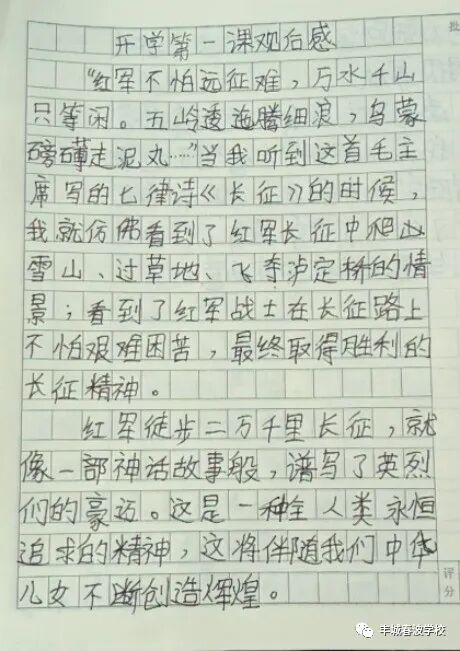 开学第一课观后感
“红军不怕远征难，万水千山
只等闲。五岭逶迤腾细浪，乌蒙
磅礴走泥丸……”当我听到这首毛主
席写的七律诗《长征》的时候，
我就仿佛看到了红军长征中爬山
雪山、过草地、飞夺泸定桥的情
景；看到了红军战士在长征路上
不怕艰难困苦，最终取得胜利的
长征精神。
红军徒步二万千里长征，就
像一部神话故事般，谱写了英烈
们的豪迈。这是一种全人类永恒
追求的精神，这将伴随我们中华
儿女不断创造辉煌。
批
评
分
丰城春波学校